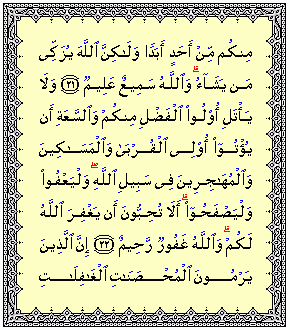 مِنكُم مِّنْ أَحَدٍ أَبَدًا وَلَـٰكِنَّ ٱللَّهَ يُزَكِّى
مَن يَشَآءُ ۗ وَٱللَّهُ سَمِيعٌ عَلِيمٌ ﴿٢١﴾ وَلَا
يَأْتَلِ أُو۟لُوا۟ ٱلْفَضْلِ مِنكُمْ وَٱلسَّعَةِ أَن
يُؤْتُوٓا۟ أُو۟لِى ٱلْقُرْبَىٰ وَٱلْمَسَـٰكِينَ
وَٱلْمُهَـٰجِرِينَ فِى سَبِيلِ ٱللَّهِ ۖ وَلْيَعْفُوا۟
وَلْيَصْفَحُوٓا۟ ۗ أَلَا تُحِبُّونَ أَن يَغْفِرَ ٱللَّهُ
لَكُمْ ۗ وَٱللَّهُ غَفُورٌ رَّحِيمٌ ﴿٢٢﴾ إِنَّ ٱلَّذِينَ
يَرْمُونَ ٱلْمُحْصَنَـٰتِ ٱلْغَـٰفِلَـٰتِ